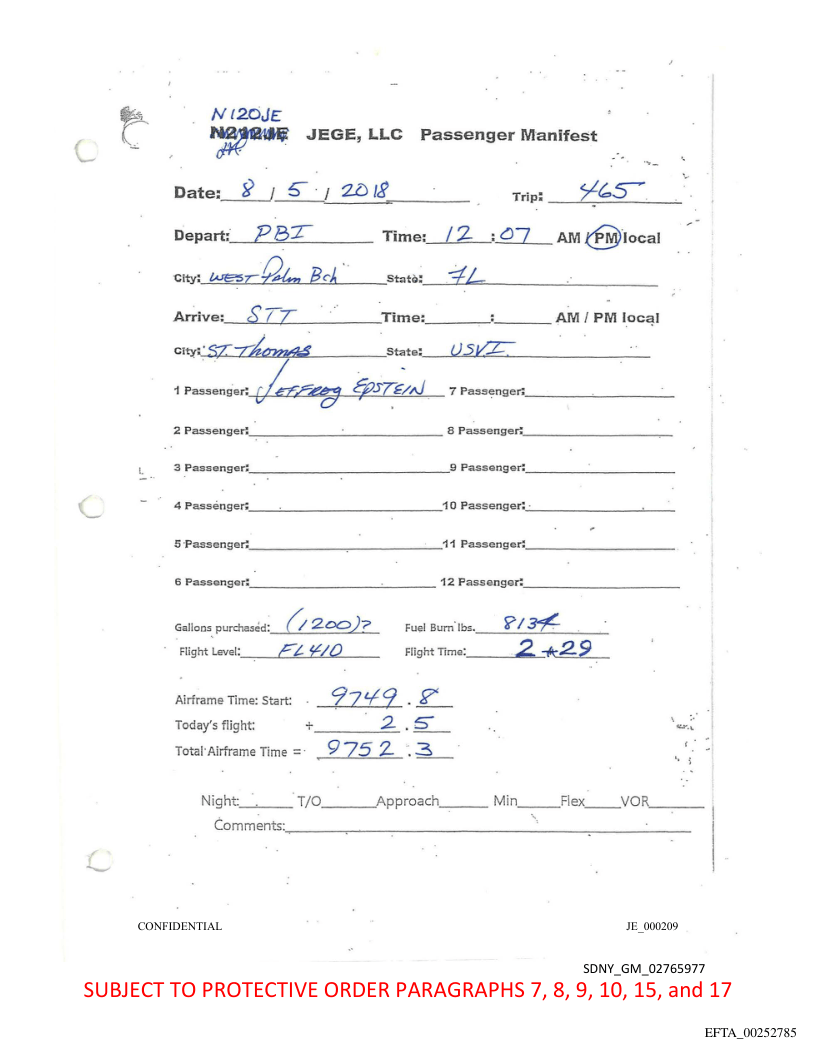 N120JE
N212JE JEGE, LLC Passenger Manifest
Date: 8 / 5 / 2018 Trip: 465
Depart: PBI Time: 12 : 07 AM / PM local
City: WEST Palm Bch State: FL
Arrive: STT Time: : AM / PM local
City: ST. Thomas State: USVI
1 Passenger: JEFFREY EPSTEIN 7 Passenger:
2 Passenger: 8 Passenger:
3 Passenger: 9 Passenger:
4 Passenger: 10 Passenger:
5 Passenger: 11 Passenger:
6 Passenger: 12 Passenger:
Gallons purchased: (1200)? Fuel Burn lbs. 8134
Flight Level: FL410 Flight Time: 2+29
Airframe Time: Start: 9749.8
Today's flight: + 2.5
Total Airframe Time = 9752.3
Night: T/O Approach Min Flex VOR
Comments:
CONFIDENTIAL JE_000209
SDNY_GM_02765977
SUBJECT TO PROTECTIVE ORDER PARAGRAPHS 7, 8, 9, 10, 15, and 17
EFTA_00252785